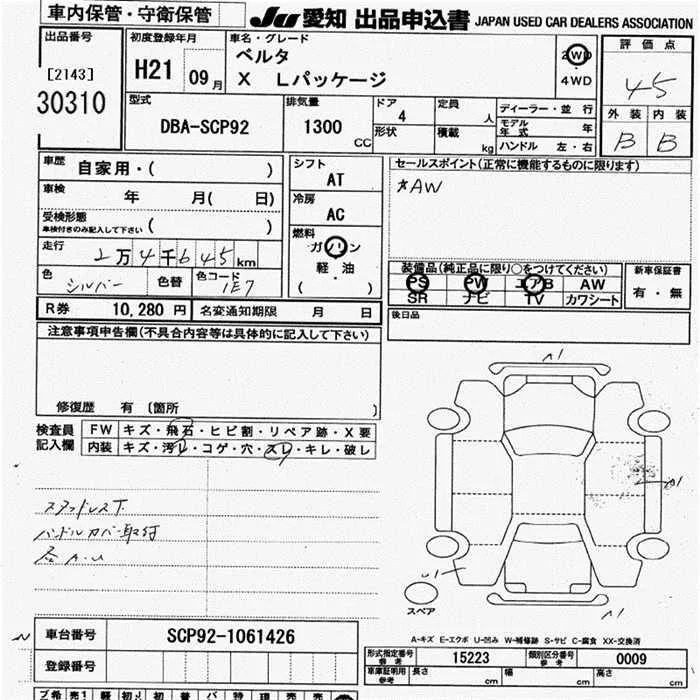 車内保管・守衛保管
JU 愛知 出品申込書 JAPAN USED CAR DEALERS ASSOCIATION
出品番号
[2143]
30310
初度登録年月
H21 09月
車名・グレード
ベルタ
X Lパッケージ
2WD
4WD
評価点
4.5
外装 内装
B B
型式
DBA-SCP92
排気量
1300 CC
ドア
4
形状
定員 人
積載 kg
ディーラー・並行
モデル年式 年
ハンドル 左・右
車歴
自家用・( )
車検
年 月( 日)
受検形態
車検付きのみ記入して下さい ( )
走行
2万4千645km
色
シルバー
色替
色コード
1E7
シフト
AT
冷房
AC
燃料
ガソリン
軽・油
( )
セールスポイント(正常に機能するものに限ります)
*AW
装備品(純正品に限り○をつけてください)
PS PW エアB AW
SR ナビ TV カワシート
新車保証書
有・無
R券 10,280円 名変通知期限 月 日
後日品
注意事項申告欄(不具合内容等は具体的に記入して下さい)
修復歴 有 〔箇所 〕
検査員記入欄
FW キズ・飛石・ヒビ割・リペア跡・X要
内装 キズ・汚レ・コゲ・穴・スレ・キレ・破レ
スタッドレス下
ハンドルカバー取付
各A・U
A1
A1
U1
A1
スペア
A-キズ E-エクボ U-凹み W-補修跡 S-サビ C-腐食 XX-交換済
車台番号 SCP92-1061426
登録番号
形式指定番号 参考 15223 類別区分番号 参考 0009
車庫証明用 参考 長さ cm 幅 cm 高さ cm